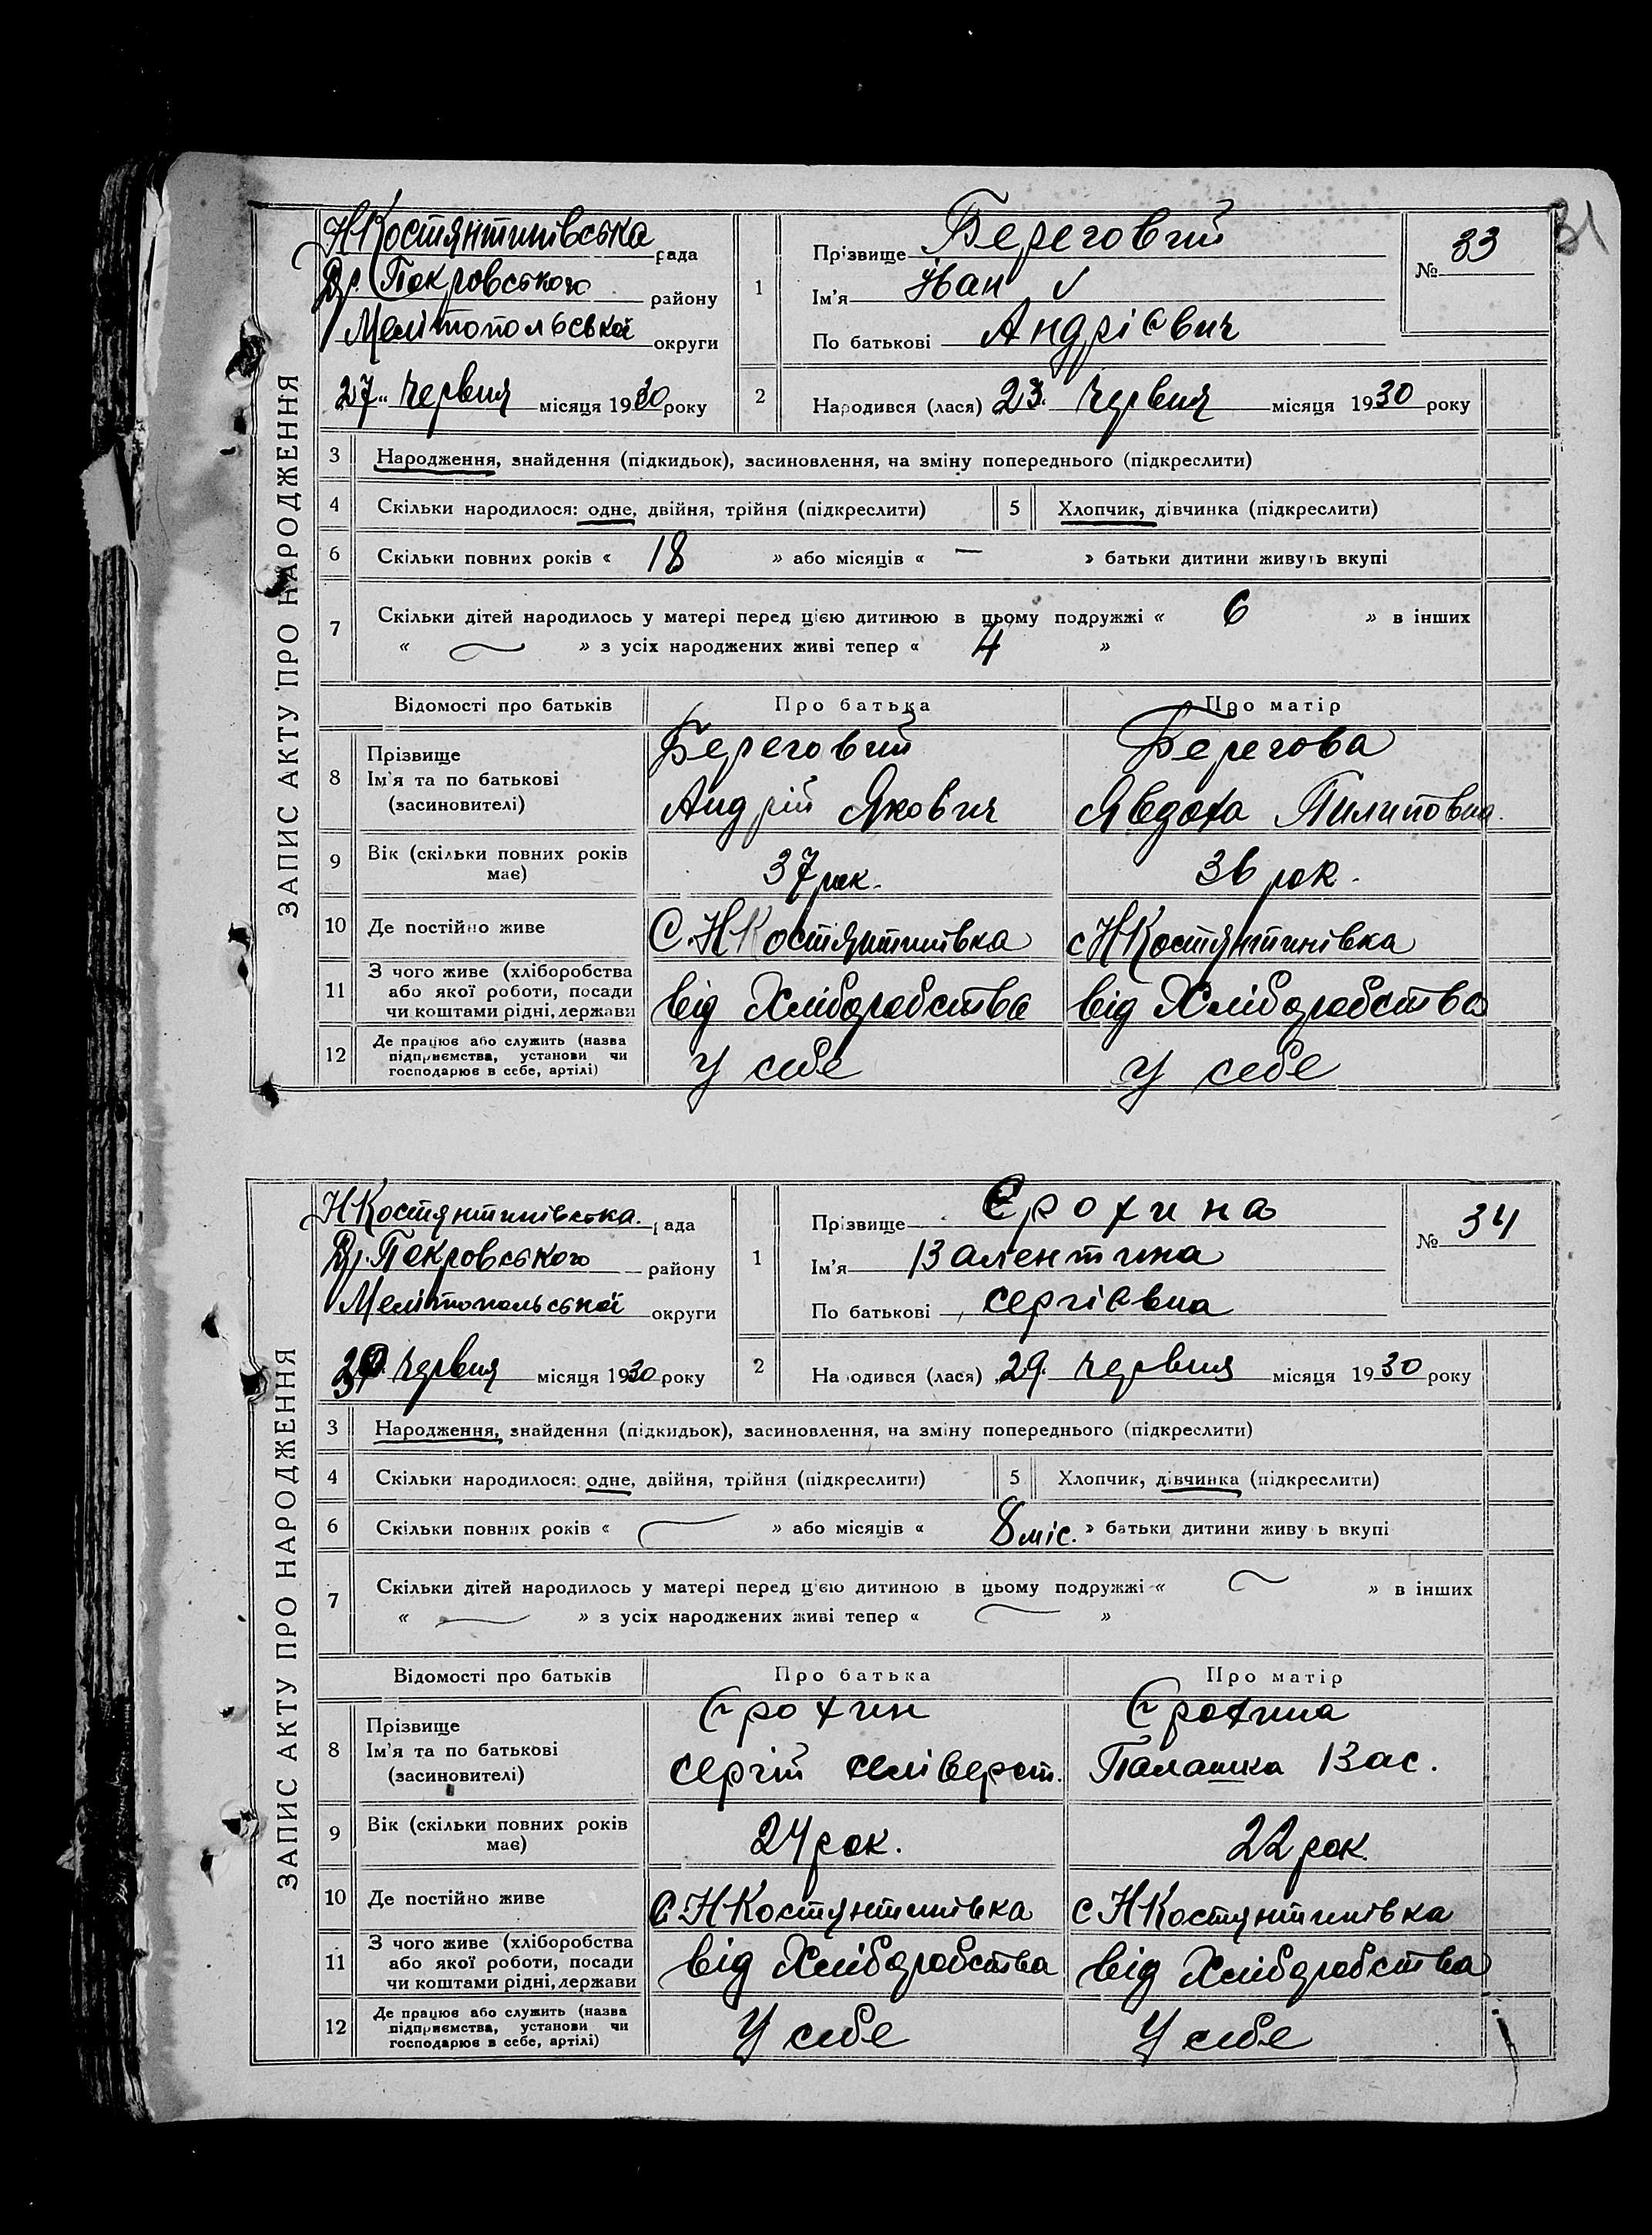 31
ЗАПИС АКТУ ПРО НАРОДЖЕННЯ
НКостянтинівська рада
Др. Покровського району
Мелітопольської округи
27 червня місяця 1930 року
1
Прізвище Береговий
Ім'я Іван ✓
По батькові Андрієвич
№ 33
2
Народився (лася) 23 червня місяця 1930 року
3 Народження, знайдення (підкидьок), засиновлення, на зміну попереднього (підкреслити)
4 Скільки народилося: одне, двійня, трійня (підкреслити) 5 Хлопчик, дівчинка (підкреслити)
6 Скільки повних років « 18 » або місяців « — » батьки дитини живуть вкупі
7 Скільки дітей народилось у матері перед цією дитиною в цьому подружжі « 6 » в інших
« — » з усіх народжених живі тепер « 4 »
Відомості про батьків Про батька Про матір
8 Прізвище Береговий Берегова
Ім'я та по батькові
(засиновителі) Андрій Якович Явдоха Пилиповна.
9 Вік (скільки повних років має) 37 рок. 36 рок.
10 Де постійно живе С. НКостянтинівка с НКостянтинівка
11 З чого живе (хліборобства
або якої роботи, посади
чи коштами рідні, держави від Хліборобства від Хліборобства
12 Де працює або служить (назва
підприємства, установи чи
господарює в себе, артілі) У себе У себе
ЗАПИС АКТУ ПРО НАРОДЖЕННЯ
НКостянтинівська рада
Др. Покровського району
Мелітопольської округи
червня місяця 1930 року
1
Прізвище Єрохина
Ім'я Валентина
По батькові Сергієвна
№ 34
2
Народився (лася) 29. червня місяця 1930 року
3 Народження, знайдення (підкидьок), засиновлення, на зміну попереднього (підкреслити)
4 Скільки народилося: одне, двійня, трійня (підкреслити) 5 Хлопчик, дівчинка (підкреслити)
6 Скільки повних років « — » або місяців « 8 міс. » батьки дитини живуть вкупі
7 Скільки дітей народилось у матері перед цією дитиною в цьому подружжі « — » в інших
« — » з усіх народжених живі тепер « — »
Відомості про батьків Про батька Про матір
8 Прізвище Єрохин Єрохина
Ім'я та по батькові
(засиновителі) Сергій Селіверст. Палашка Вас.
9 Вік (скільки повних років має) 24 рок. 22 рок.
10 Де постійно живе С. НКостянтинівка с НКостянтинівка
11 З чого живе (хліборобства
або якої роботи, посади
чи коштами рідні, держави від Хліборобства від Хліборобства
12 Де працює або служить (назва
підприємства, установи чи
господарює в себе, артілі) У себе У себе